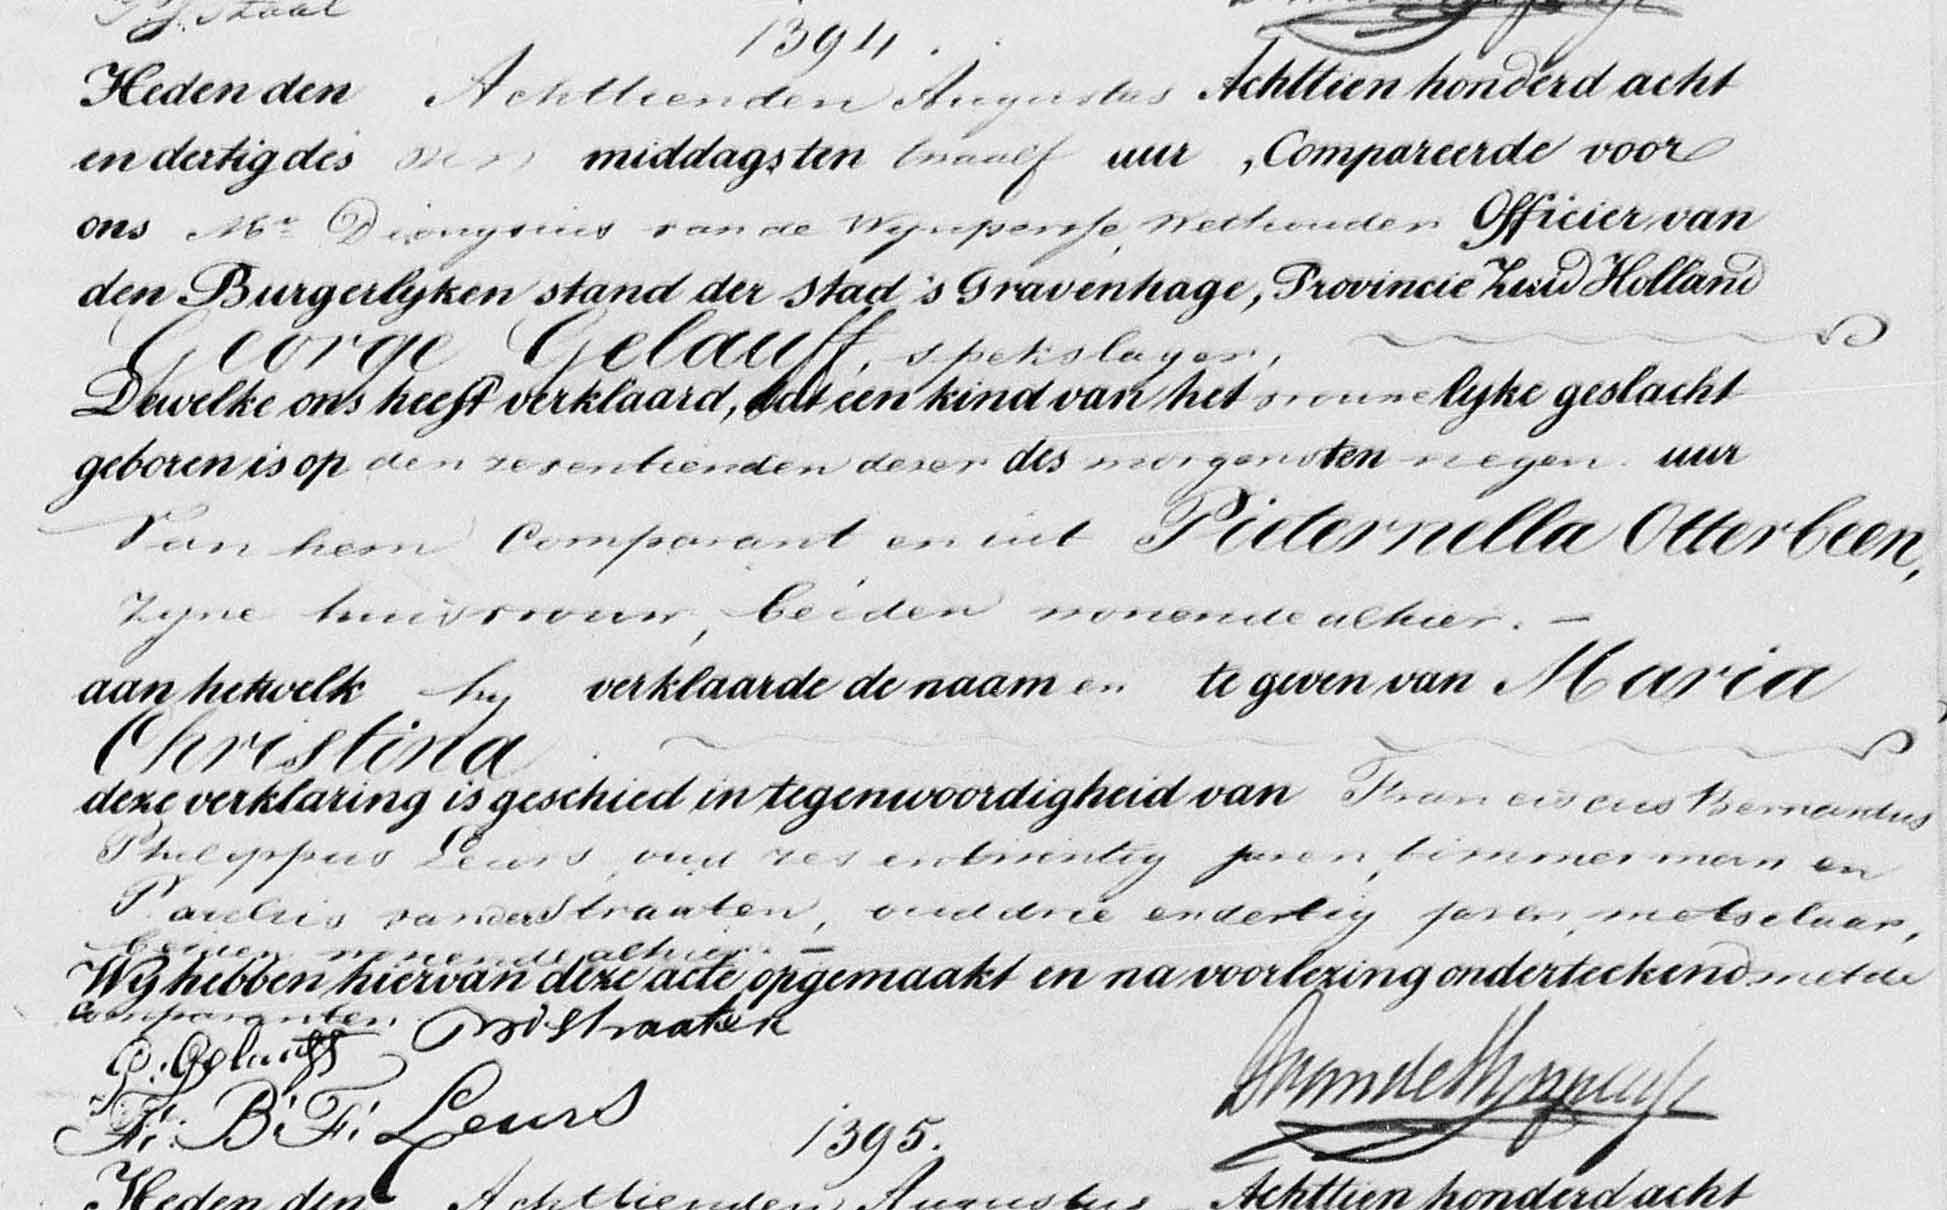 P. J. Staal
1394.
Heden den Achttienden Augustus Achttien honderd acht
en dertig des voor middags ten twaalf uur, Compareerde voor
ons Mr. Dionysius van de Wijnpersse, Wethouder Officier van
den Burgerlyken stand der stad 's Gravenhage, Provincie Zuid Holland
George Gelauff, spekslager,
Dewelke ons heeft verklaard, dat een kind van het vrouwelyke geslacht
geboren is op den zesentienden dezer des morgens ten negen uur
Van hem Comparant en uit Pieternella Otterbeen,
zyne huisvrouw, beiden wonende alhier. —
aan hetwelk hy verklaarde de naamen te geven van Maria
Christina
deze verklaring is geschied in tegenwoordigheid van Franciscus Bernardus
Philippus Leurs, oud zes entwintig jaren, timmerman en
Paulus van der Straaten, oud drie endertig jaren, metselaar,
beiden wonende alhier. —
Wy hebben hiervan deze acte opgemaakt en na voorlezing onderteekend met de
Comparanten.
G. Gelauff Pvd Straaten
F. B. F. Leurs DvandeWynpersse
1395.
Heden den Achttienden Augustus Achttien honderd acht